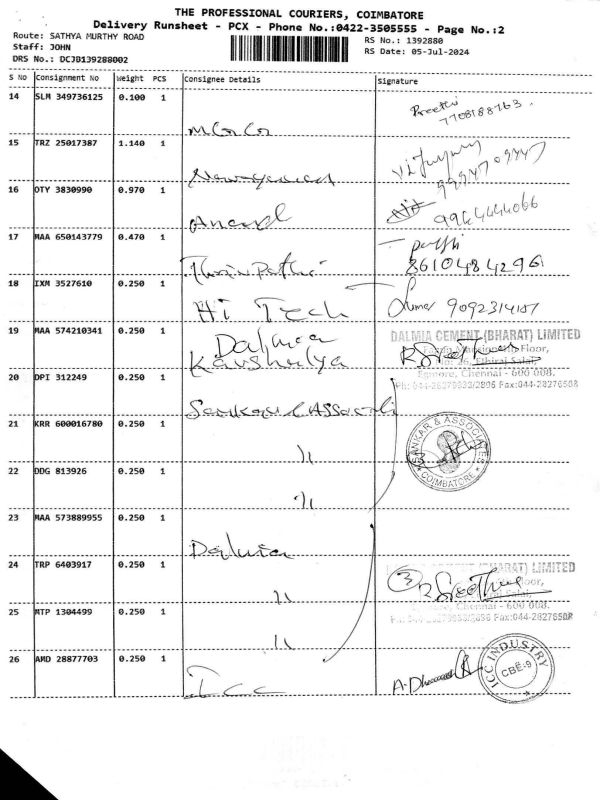 THE PROFESSIONAL COURIERS, COIMBATORE
Delivery Runsheet - PCX - Phone No.:0422-3505555 - Page No.:2
Route: SATHYA MURTHY ROAD
RS No.: 1392880
Staff: JOHN
RS Date: 05-Jul-2024
DRS No.: DCJB139288002
S No Consignment No Weight PCS Consignee Details Signature
14 SLM 349736125 0.100 1
Preethi
7708188763.
15 TRZ 25017387 1.140 1
16 OTY 3830990 0.970 1 Anand
9964444066
17 MAA 650143779 0.470 1
8610484296
18 IXM 3527610 0.250 1 Hi Tech
Kumar 9092314107
19 MAA 574210341 0.250 1 Dalmia
Kaushalya
DALMIA CEMENT (BHARAT) LIMITED
Floor,
Ethiraj Salai,
Egmore, Chennai - 600 008.
Fax:044-28276508
20 DPI 312249 0.250 1 Sankar & Associates
21 KRR 600016780 0.250 1 "
SANKAR & ASSOCIATES
COIMBATORE
22 DDG 813926 0.250 1 "
23 MAA 573889955 0.250 1 Dalmia
24 TRP 6403917 0.250 1 "
(BHARAT) LIMITED
Floor,
Salai,
Egmore, Chennai - 600 008.
Fax:044-28276508
25 MTP 1304499 0.250 1 "
26 AMD 28877703 0.250 1 Icc
ICC INDUSTRY
CBE-9